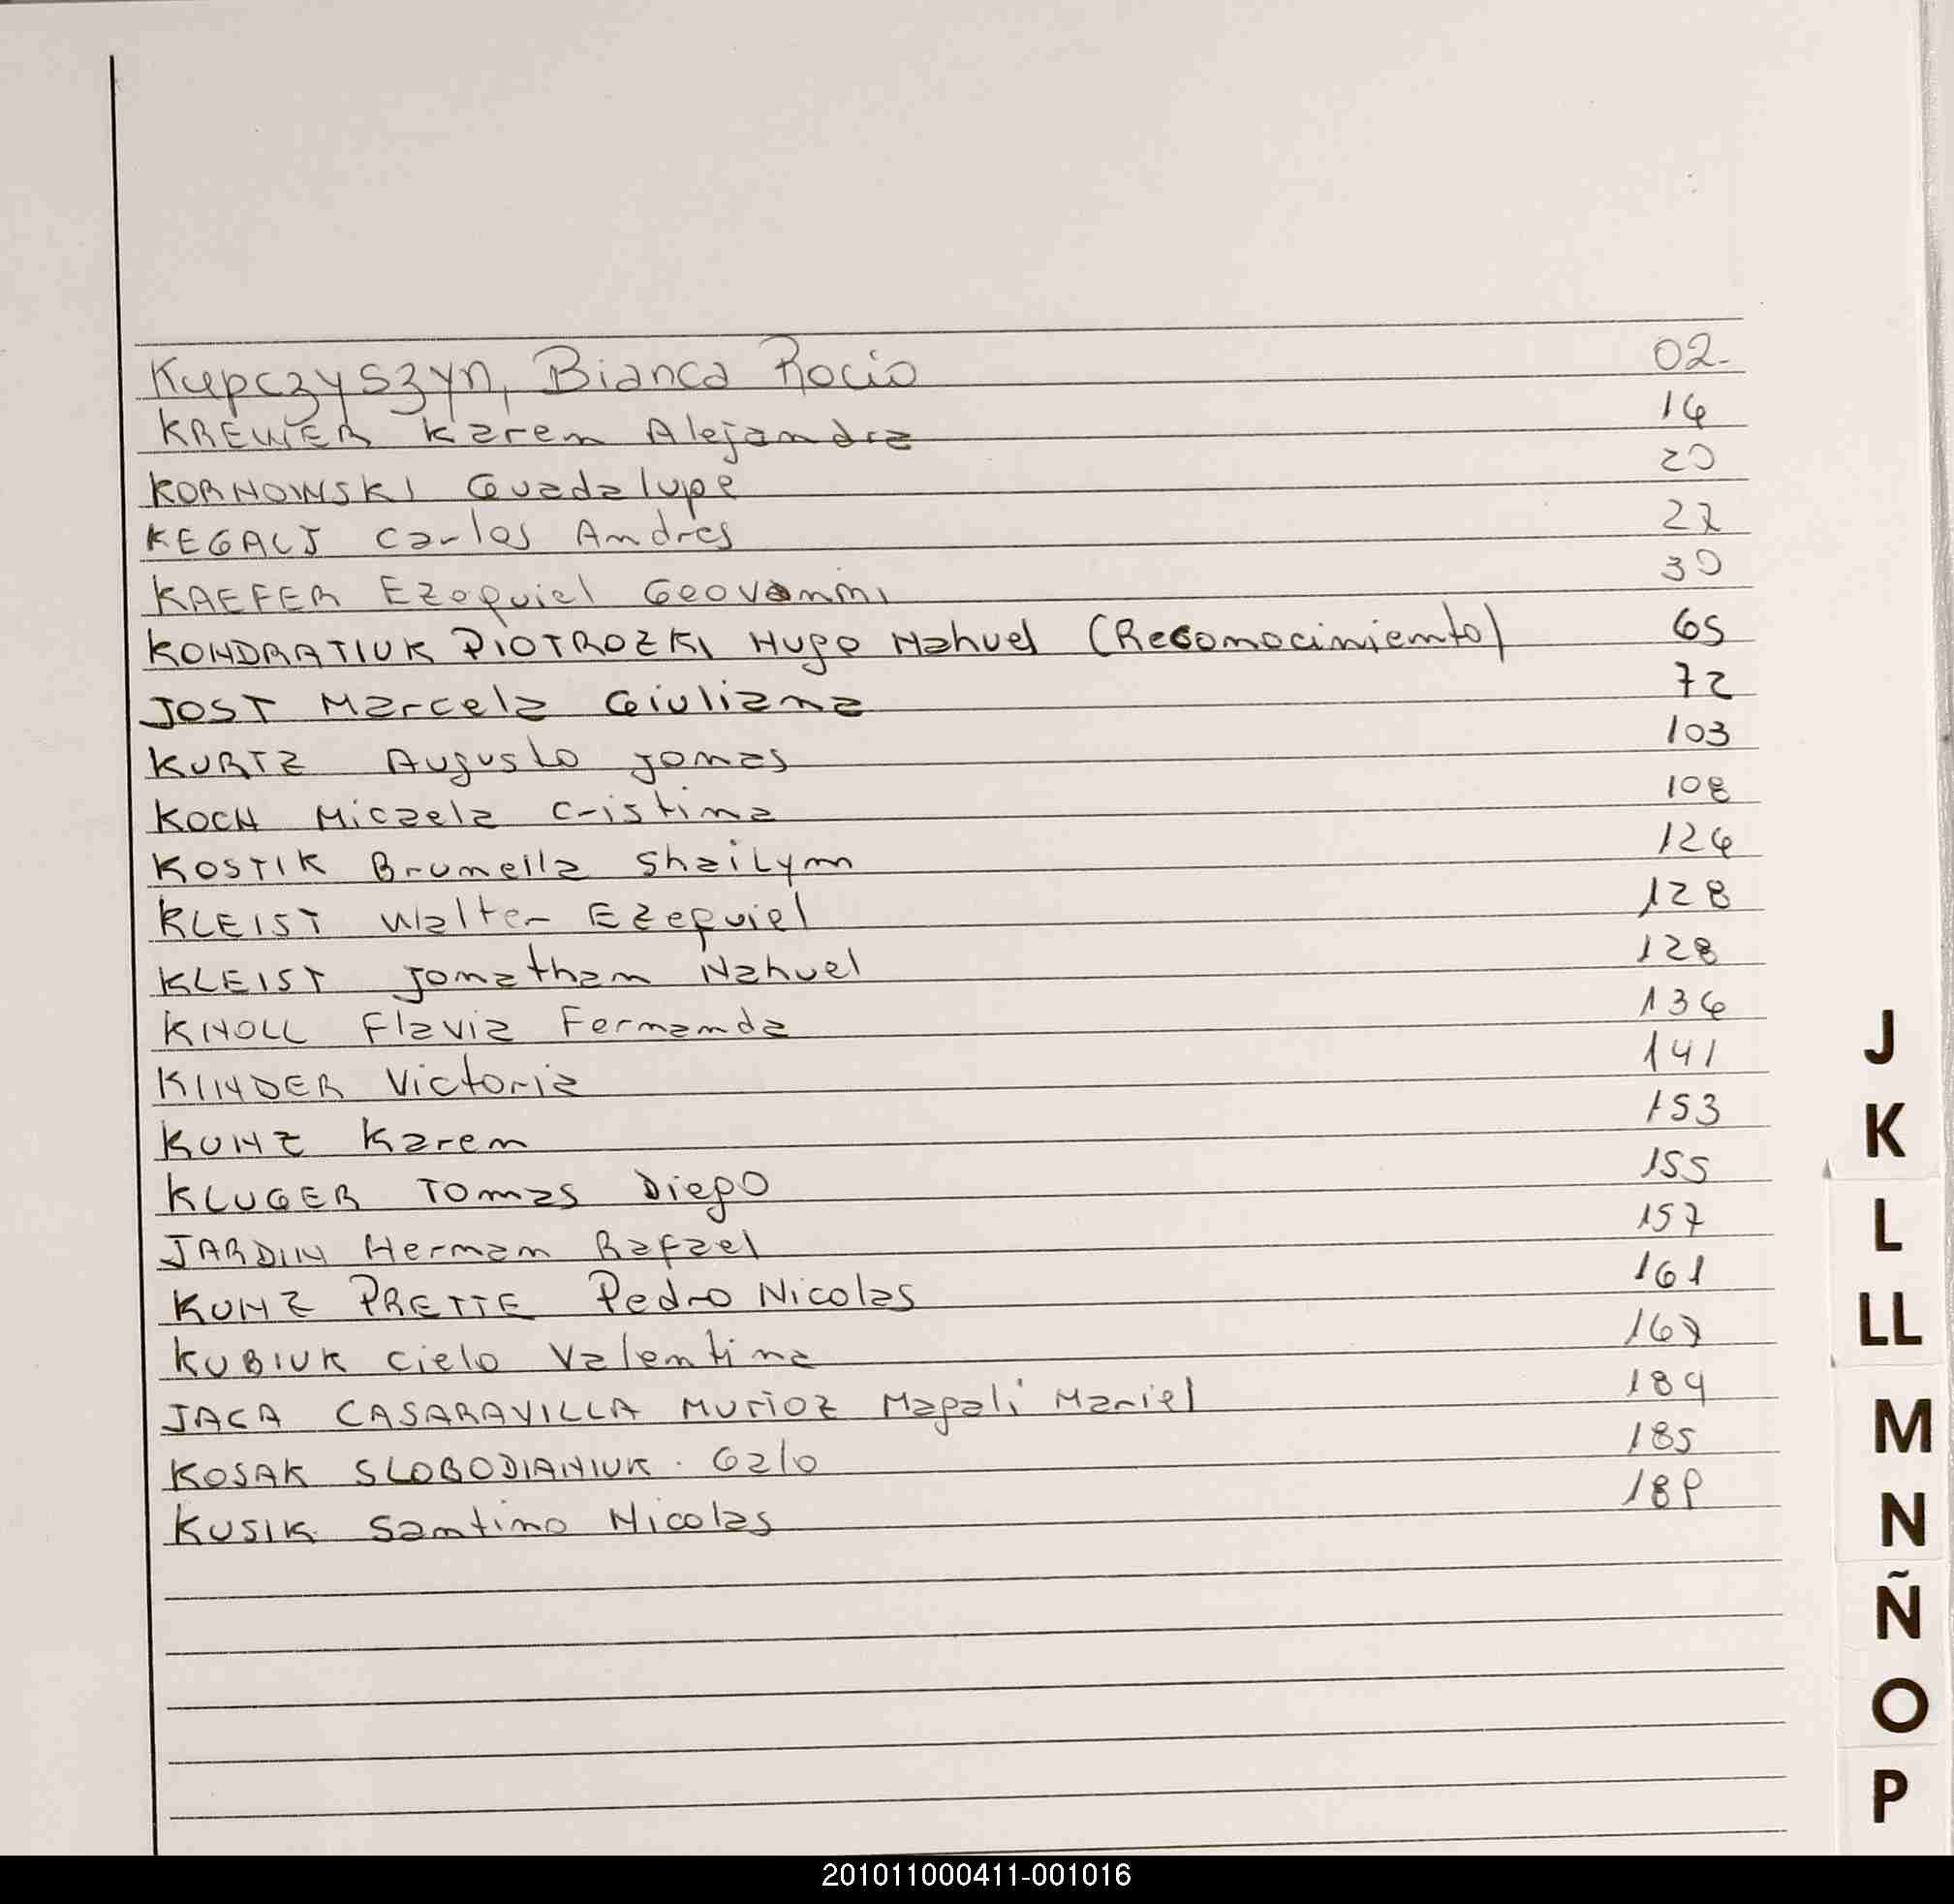 Kupczyszyn, Bianca Rocio 02-
KREWER Karen Alejandra 14
KORNOWSKI Guadalupe 20
KEGALJ Carlos Andrés 27
KAEFER Ezequiel Geovanni 30
KONDRATIUK PIOTROZKI Hugo Nahuel (Reconocimiento) 65
JOST Marcela Giuliana 72
KURTZ Augusto Jonas 103
KOCH Micaela Cristina 108
KOSTIK Brunella ShaiLynn 124
KLEIST Walter Ezequiel 128
KLEIST Jonathan Nahuel 128
KNOLL Flavia Fernanda 134
KINDER Victoria 141
KUNZ Karen 153
KLUGER Tomas Diego 155
JARDIN Hernan Rafael 157
KUNZ PRETTE Pedro Nicolas 161
KUBIUK Cielo Valentina 167
JACA CASARAVILLA MUÑOZ Magali Mariel 184
KOSAK SLOBODIANIUK. 185
KUSIK Santino Nicolas 189
J
K
L
LL
M
N
Ñ
O
P
201011000411-001016